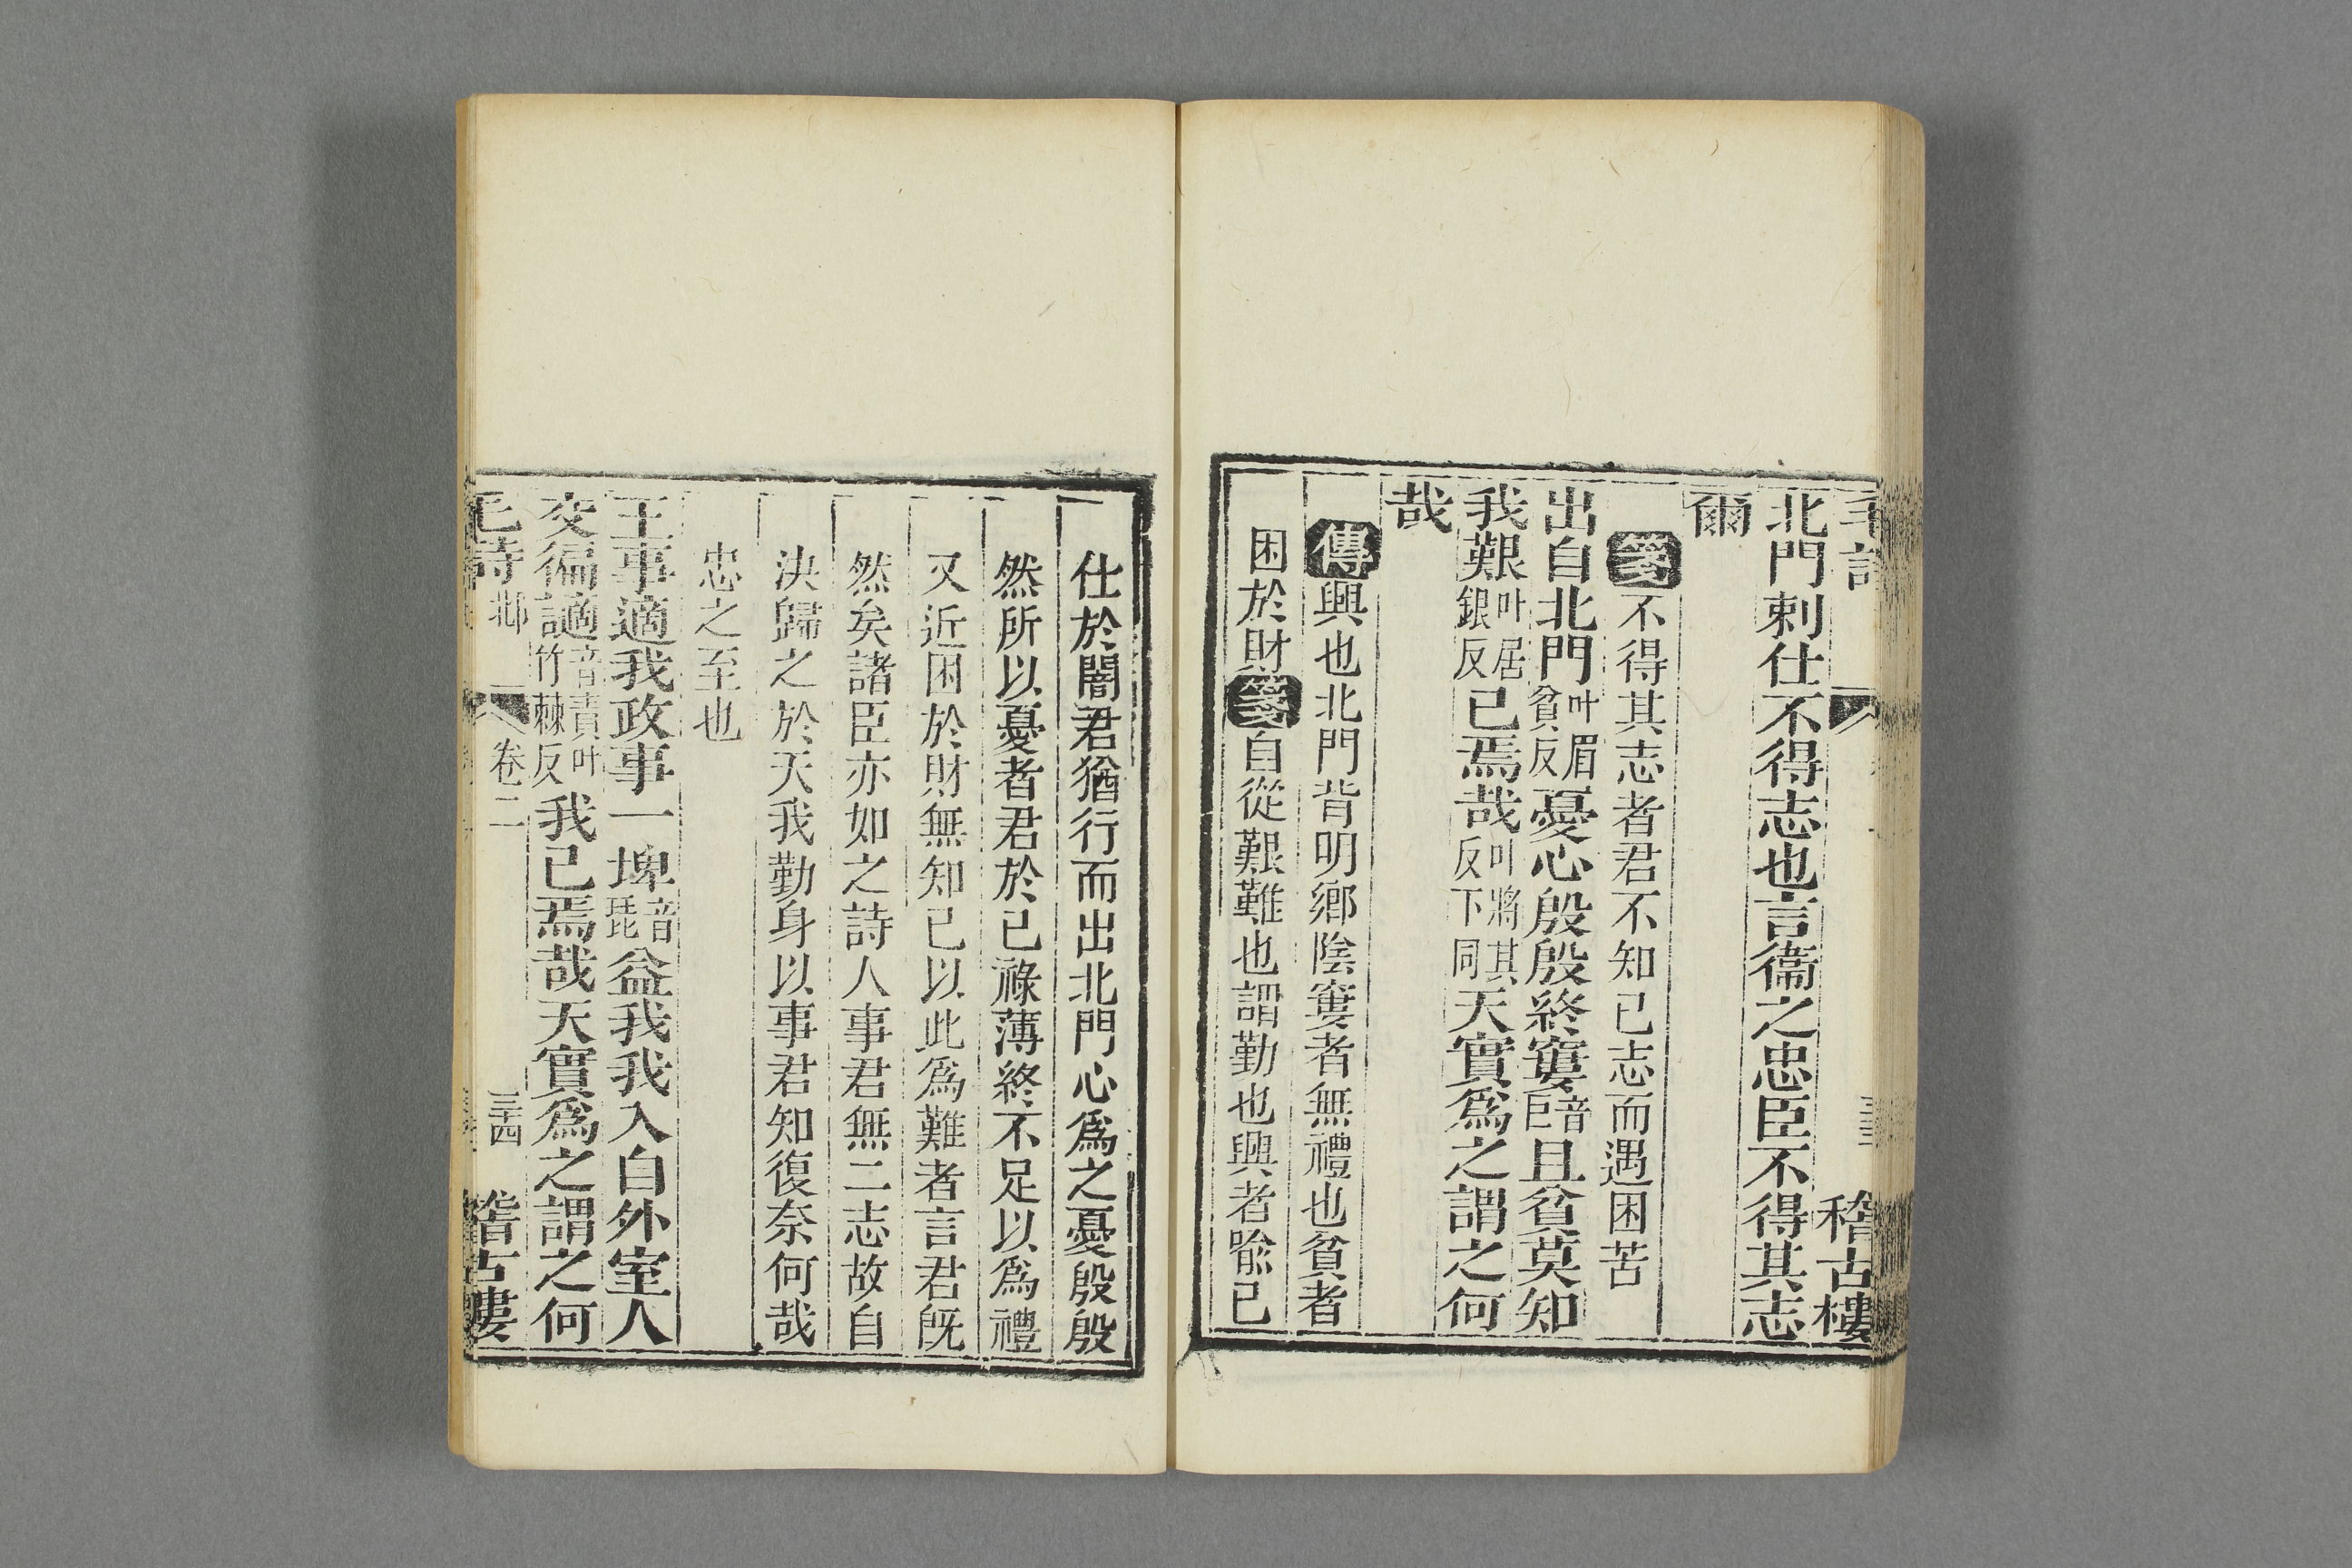 毛詩 三三 稽古樓
北門刺仕不得志也言衞之忠臣不得其志
爾
箋不得其志者君不知已志而遇困苦
出自北門叶眉貧反憂心殷殷終窶音巨且貧莫知
我艱叶居銀反已焉哉叶將其反下同天實爲之謂之何
哉
傳興也北門背明鄉陰窶者無禮也貧者
困於財箋自從艱難也謂勤也興者喩已
仕於闇君猶行而出北門心爲之憂殷殷
然所以憂者君於已祿薄終不足以爲禮
又近困於財無知已以此爲難者言君旣
然矣諸臣亦如之詩人事君無二志故自
決歸之於天我勤身以事君知復奈何哉
忠之至也
王事適我政事一埤音琵益我我入自外室人
交徧讁音責叶竹棘反我已焉哉天實爲之謂之何
毛詩 邶 卷二 三四 稽古樓